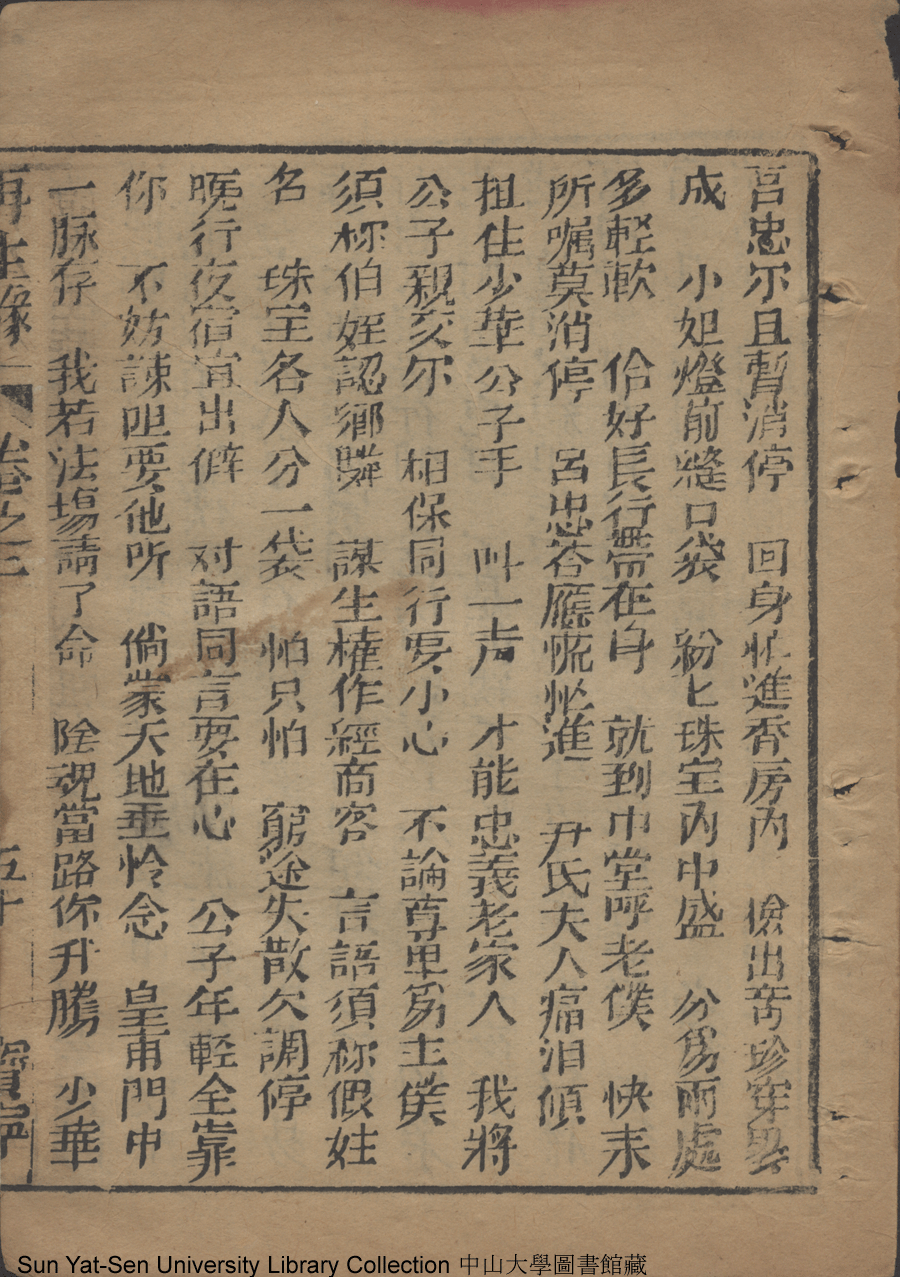 呂忠尔且暫消停　回身忙進香房內　撿出竒珍穿
成　小姐燈前縫口袋　紛匕珠宝內中盛　分爲兩處
多輕軟　恰好長行帶在身　就到中堂呼老僕　快耒
所嘱莫消停　呂忠答應慌忙進　尹氏夫人痛泪傾
扭住少華公子手　叫一声　才能忠義老家人　我將
公子親交尔　相保同行要小心　不論尊卑爲主僕
須称伯姪認鄉隣　謀生權作經商客　言語須称假姓
名　珠宝各人分一袋　怕只怕　窮途失散欠調停
晚行夜宿宜出僻　对語同言要在心　公子年輕全靠
你　不妨諫阻要他听　倘蒙天地垂怜念　皇甫門中
一脉存　我若法塲請了命　陰魂當路你升騰　少華
再生緣　卷之三　五十　寶寧
Sun Yat-Sen University Library Collection 中山大學圖書館藏